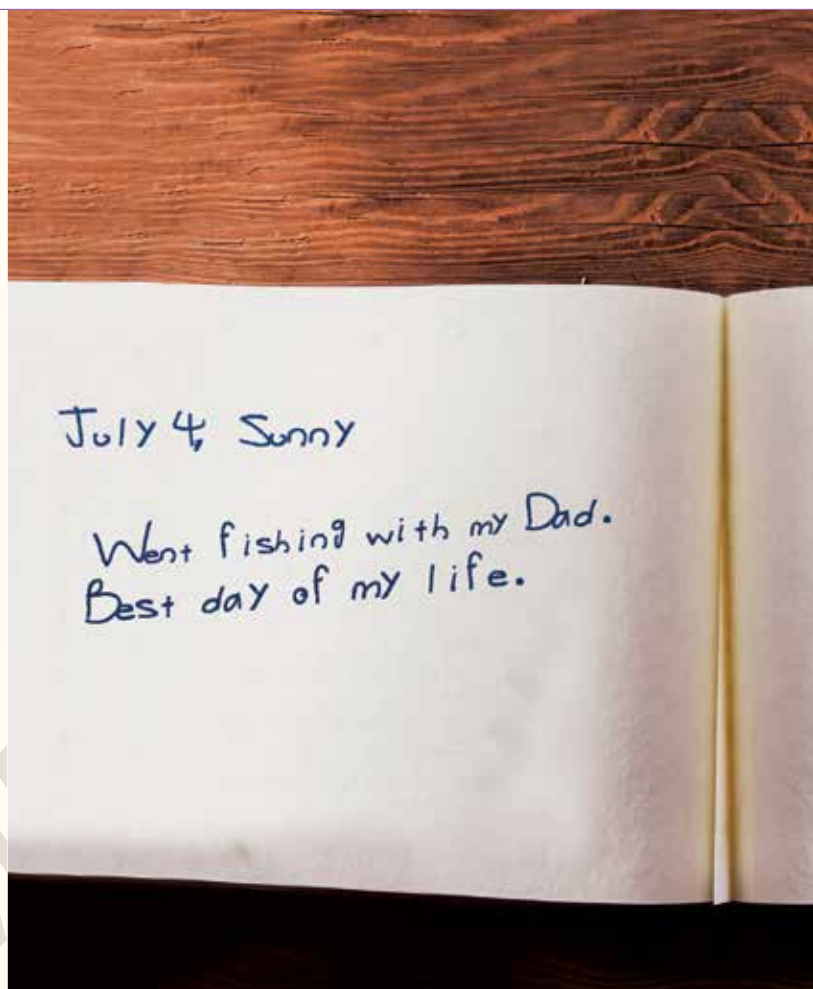 July 4, Sunny
Went fishing with my Dad.
Best day of my life.